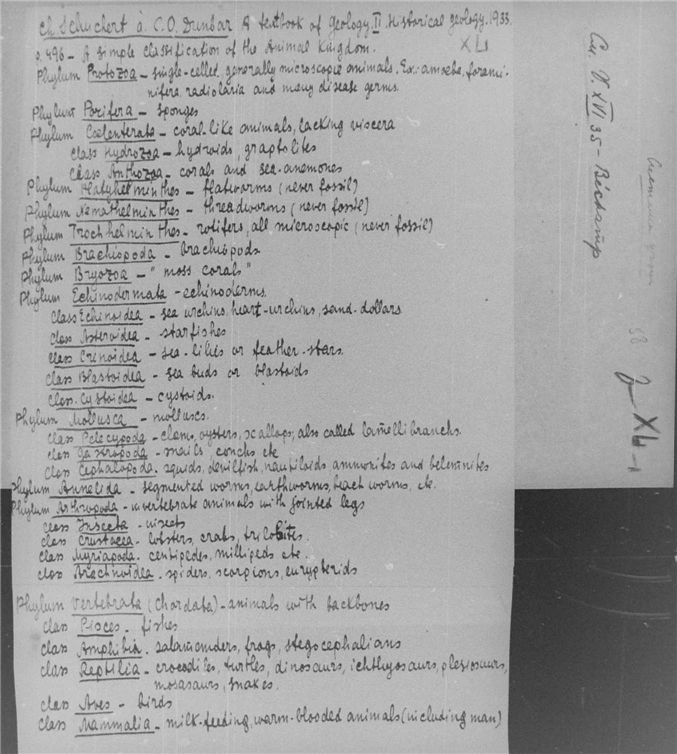 Ch. Schuchert a. C.O. Dunbar A textbook of Geology. II. Historical geology. 1933.
p. 496 - A simple classification of the Animal Kingdom.
XL1
Phylum Protozoa - single-celled, generally microscopic animals. Ex.: amoeba, forami-
nifera, radiolaria and many disease germs.
Phylum Porifera - sponges
Phylum Coelenterata - coral-like animals, lacking viscera
class Hydrozoa - hydroids, graptolites
class Anthozoa - corals and sea-anemones
Phylum Platyhelminthes - flatworms (never fossil)
Phylum Nemathelminthes - threadworms (never fossil)
Phylum Trochelminthes - rotifers, all microscopic (never fossil)
Phylum Brachiopoda - brachiopods.
Phylum Bryozoa - "moss corals"
Phylum Echinodermata - echinoderms.
Class Echinoidea - sea urchins, heart-urchins, sand-dollars
class Asteroidea - starfishes
class Crinoidea - sea-lilies or feather-stars.
class Blastoidea - sea buds or blastoids
class Cystoidea - cystoids.
Phylum Mollusca - molluscs.
class Pelecypoda - clams, oysters, scallops; also called lamellibranchs.
class Gastropoda - snails, conchs etc
class Cephalopoda - squids, devilfish, nautiloids, ammonites and belemnites
Phylum Annelida - segmented worms, earthworms, beach worms, etc.
Phylum Arthropoda - invertebrate animals with jointed legs
class Insecta - insects
class Crustacea - lobsters, crabs, trilobites.
class Myriapoda - centipedes, millipeds etc.
class Arachnoidea - spiders, scorpions, eurypterids
Phylum Vertebrata (Chordata) - animals with backbones
class Pisces - fishes
class Amphibia - salamanders, frogs, stegocephalians
class Reptilia - crocodiles, turtles, dinosaurs, ichthyosaurs, plesiosaurs,
mosasaurs, snakes.
class Aves - birds
class Mammalia - milk-feeding, warm-blooded animals (including man)
XVI 35 - Béchamp
38
XL-1